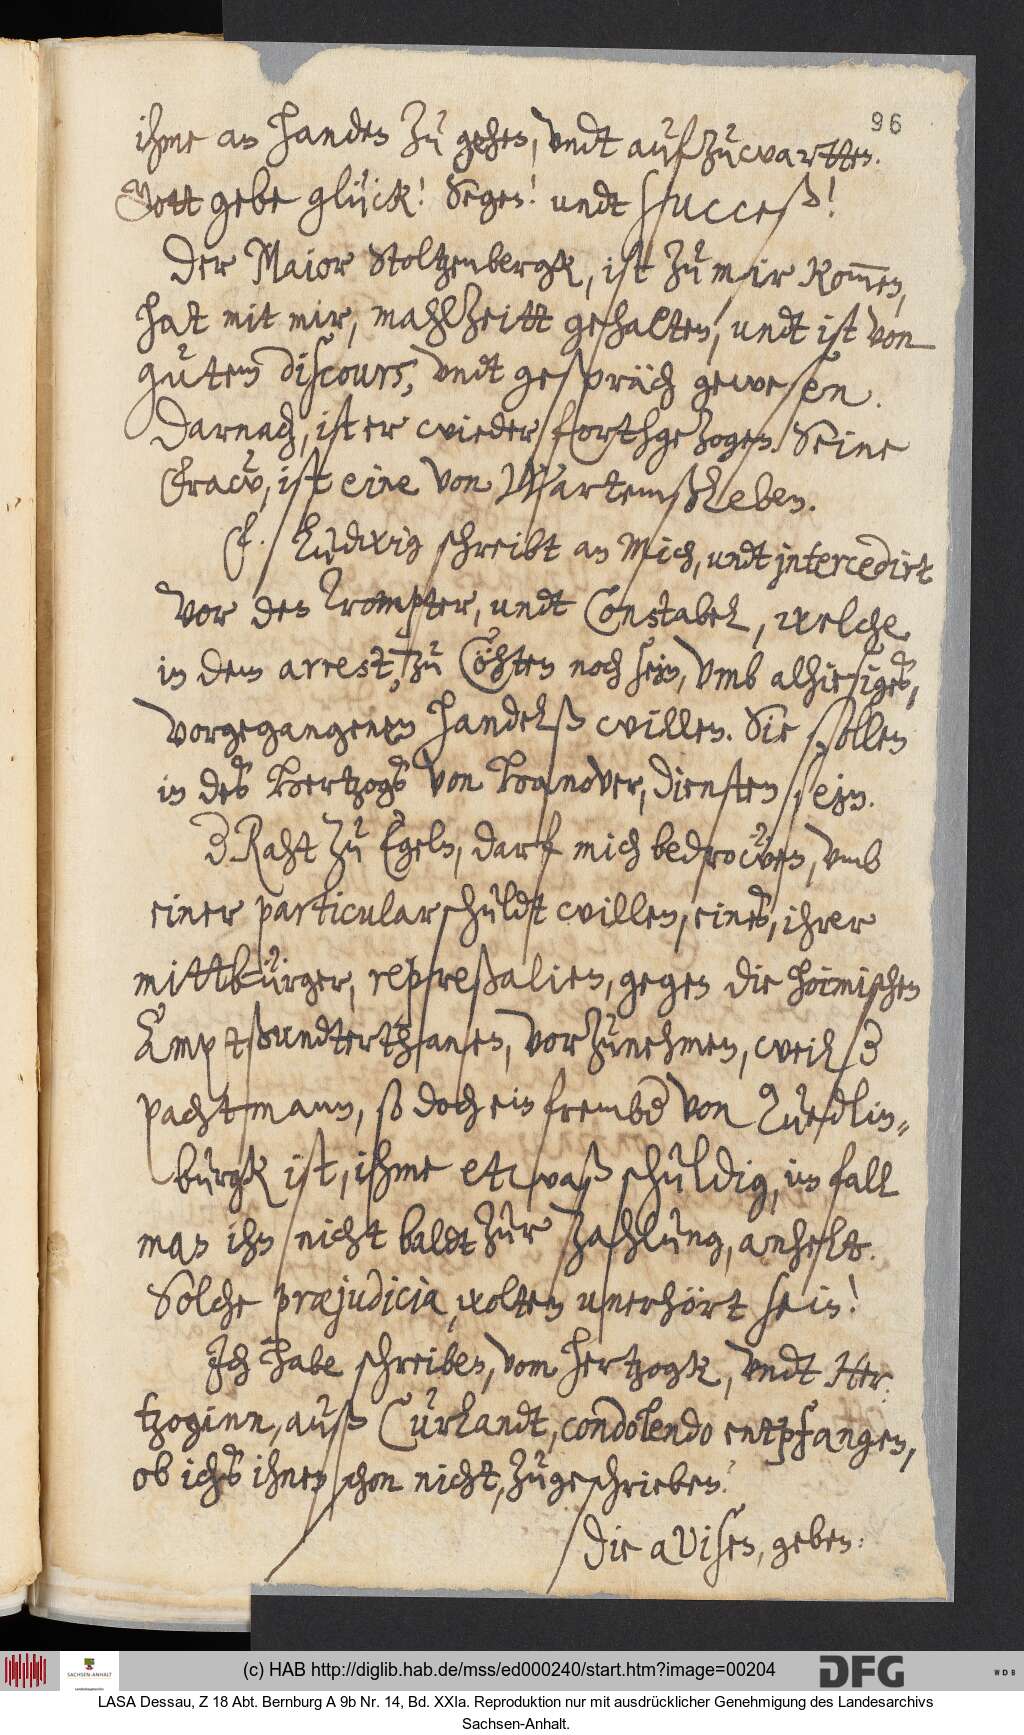 96
ihme an handen zu gehen, undt aufzuwartten.
Gott gebe glück! Segen! undt succeß!
Der Maior Stoltzenbergk, ist zu mir kom̅en,
hat mit mir, mahlzeitt gehalten, undt ist von
gutem discours, undt gespräch gewesen.
Darnach, ist er wieder forthgezogen. Seine
Fraw, ist eine von Wartemßleben.
F. Ludwig schreibt an Mich, undt intercedirt
vor den Trompter, undt Constabel, welche
in dem arrest, zu Cöhten noch sein, umb alhiesiges,
vorgegangenen handelß willen. Sie sollen
in des Hertzogs von Hanover, diensten sein.
D Raht zu Egeln, darf mich bedrowen, umb
einer particularschuldt willen, eines, ihrer
mittbürger, repreßalien, gegen die hoimischen
Amptßundterthanen, vorzunehmen, weil D
pachtmann, so doch ein frembd von Quedlin„
burgk ist, ihme etwaß schuldig, im fall
man ihn nicht baldt zur zahlung, anhelt.
Solche præjudicia, wolten unerhört sein!
Ich habe schreiben, vom hertzogk, undt Her:
tzoginn, auß Curlandt, condolendo entpfangen,
ob ichs ihnen schon nicht, zugeschrieben.
Die avisen, geben:
(c) HAB http://diglib.hab.de/mss/ed000240/start.htm?image=00204
SACHSEN-ANHALT
DFG
WDB
LASA Dessau, Z 18 Abt. Bernburg A 9b Nr. 14, Bd. XXIa. Reproduktion nur mit ausdrücklicher Genehmigung des Landesarchivs
Sachsen-Anhalt.